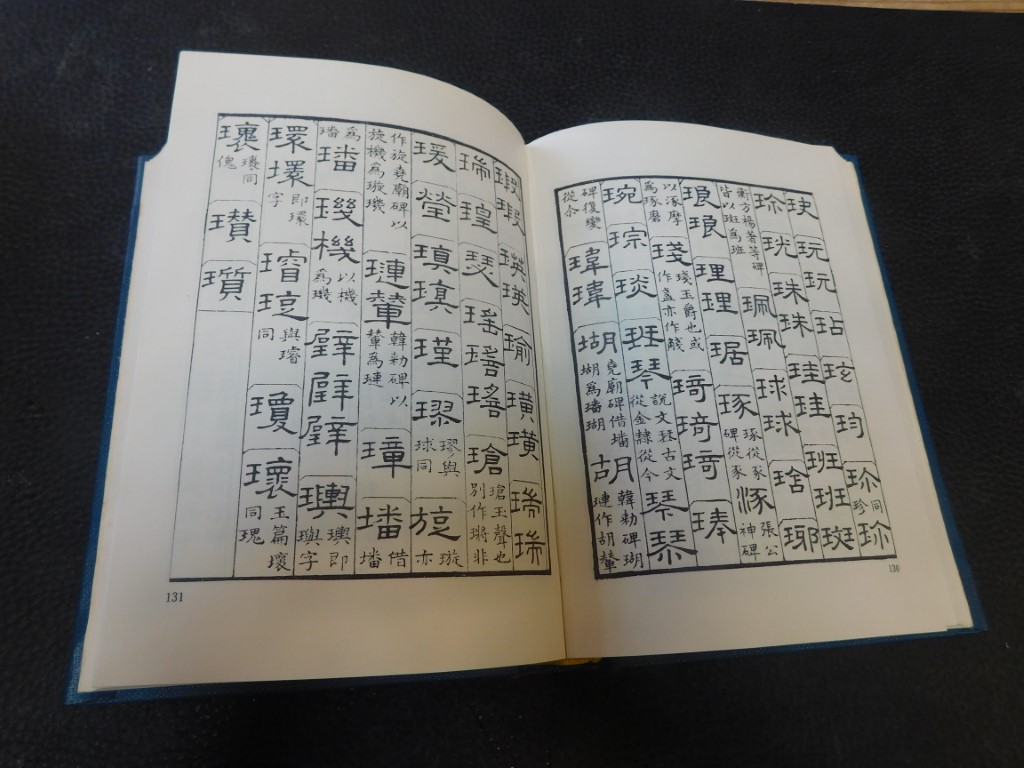 玞 玩 玩 玷 玹 玓 珍 同珍 珎
珎 珖 珠 珠 珪 珪 班 班 斑
衡方楊著等碑皆以斑為班 珮 珮 球 球 琀 琊
琅 琅 理 理 琚 琢 琢從豖碑從豕 涿 張公神碑
以涿摩為琢磨 琖 琖玉爵也或作盞亦作醆 琦 琦 琦 琫
琬 琮 琰 班 琴 說文珡古文從金隸從今 琴 琴
碑復變從余 瑋 瑋 瑚 堯廟碑借墦瑚為璠瑚 胡 韓勑碑瑚璉作胡輦
瑕 瑕 瑛 瑛 瑜 璜 瑞 瑞
瑞 瑝 瑟 瑤 瑤 瑤 瑲 瑲玉聲也別作瑡非
瑗 瑩 瑱 瑱 瑾 璆 璆與球同 旋 璇亦
作旋堯廟碑以旋機為璇璣 璉 輦 韓勑碑以輦為璉 璋 墦 借墦
為璠 璠 璣 機 以機為璣 璧 璧 璧 璵 璵即璵字
環 環 即環字 璿 琁 與璿同 瓊 瓌 玉篇瓌同瑰
瓖 瓖同傀 瓚 瓆
131
130